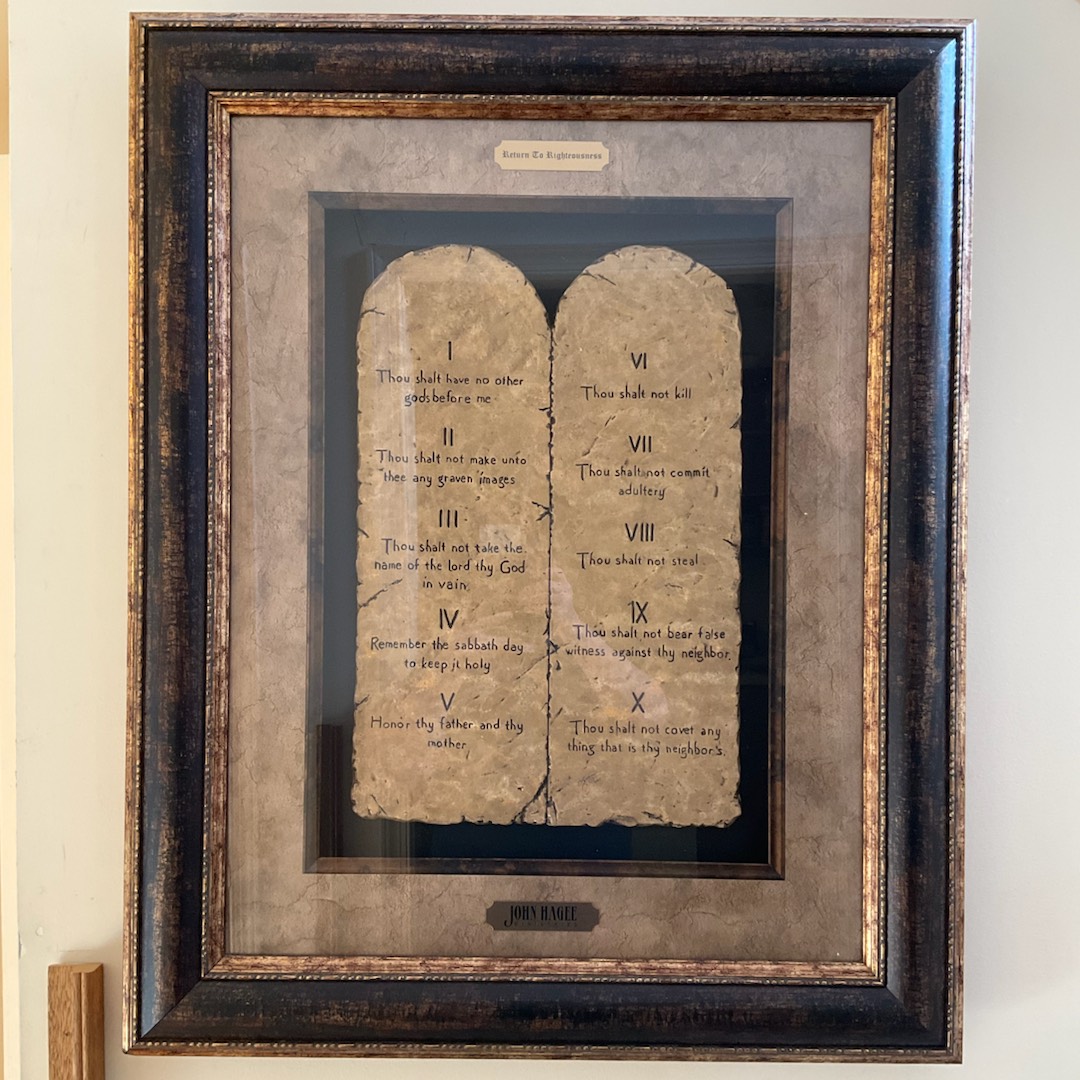 Return To Righteousness
I
Thou shalt have no other
gods before me
II
Thou shalt not make unto
thee any graven images
III
Thou shalt not take the
name of the lord thy God
in vain
IV
Remember the sabbath day
to keep it holy
V
Honor thy father and thy
mother
VI
Thou shalt not kill
VII
Thou shalt not commit
adultery
VIII
Thou shalt not steal
IX
Thou shalt not bear false
witness against thy neighbor.
X
Thou shalt not covet any
thing that is thy neighbor's.
JOHN HAGEE